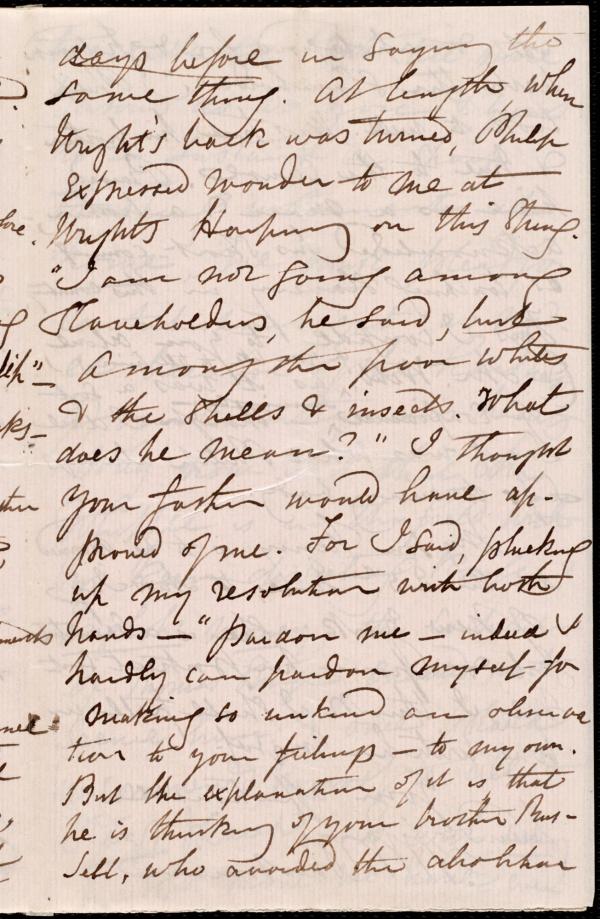 days before in saying the
same thing. At length, when
Wright's back was turned, Philip
Expressed wonder to me at
Wright's Harping on this Thing.
"I am not going among
Slaveholders, he said, but
amongst the poor whites
& the Shells & insects. What
does he mean?" I thought
your father would have ap-
proved of me. For I said, plucking
up my resolution with both
hands — "Pardon me — indeed I
hardly can pardon myself for
making so unkind an observa
tion to your feelings — to my own.
But the explanation of it is that
he is thinking of your brother Rus-
sell, who avoided the abolition